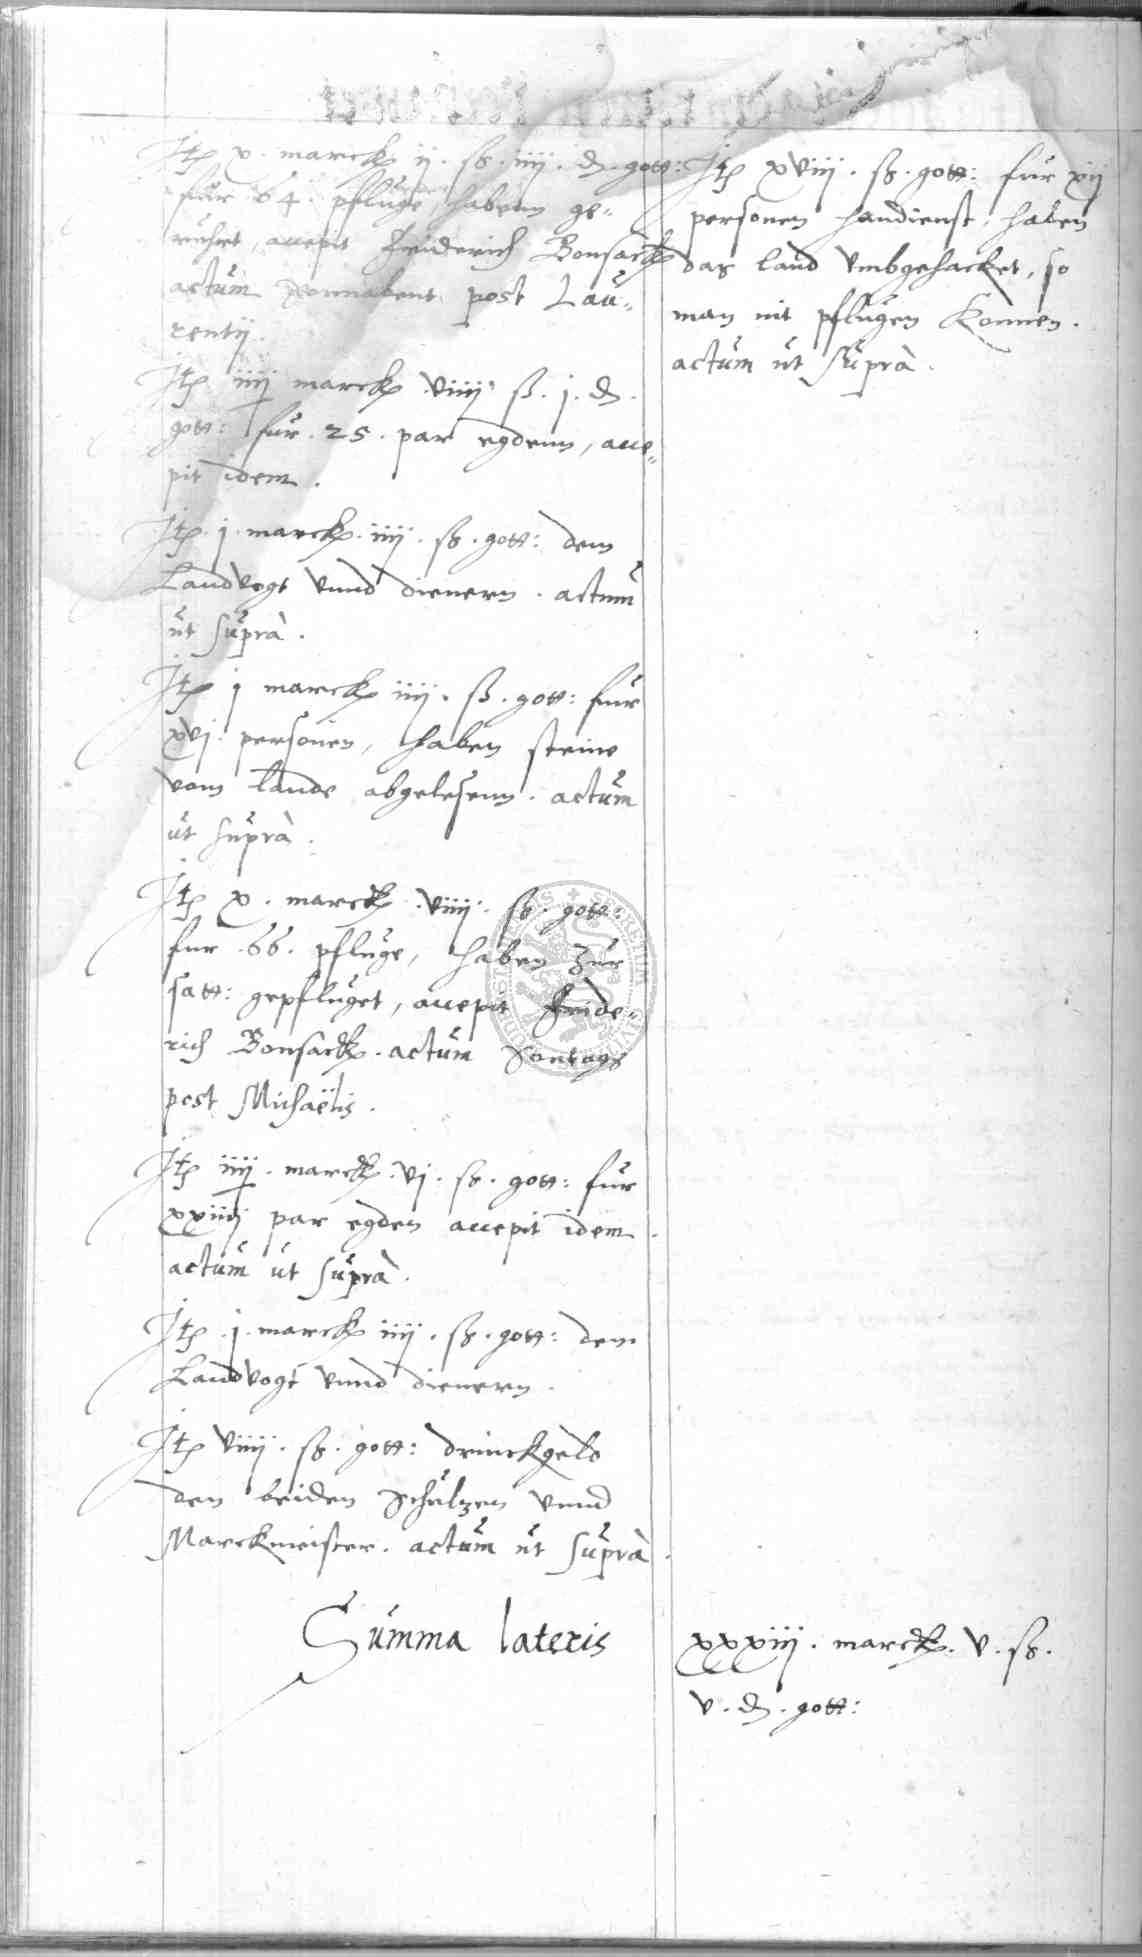 Itē v. marck ij. ß. iiij. d. gott:
fur 64. pfluge, habenn ge-
ruhret, accepit Friderich Bonsack
actum Sonnabent post Lau-
rentij.
Itē iiij marck viiij ß. j. d.
gott: fur. 25. par egdenn, acce-
pit idem.
Itē. j. marck. iiij. ß. gott: dem
Landvogt vnnd dienern. actum
ut supra.
Itē j marck iiij. ß. gott: fur
xvj. personen, haben steine
vom lande abgelesenn. actum
ut supra.
Itē v. marck. viiij. ß. gott:
fur .66. pfluge, haben zur
satt: gepfluget, accepit Fride-
rich Bonsack. actum Sontags
post Michaëlis.
Itē iiij. marck. vj. ß. gott: fur
xxiiij par egden accepit idem.
actum ut supra.
Itē .j. marck iiij. ß. gott: dem
Landvogt vnnd dienern.
Itē viiij. ß. gott: drinckgelt
den beiden Schultzen vnnd
Marckmeister. actum ut supra.
Itē xviij. ß. gott: fur xij
personen handienst, haben
das land vmbgehacket, so
man nit pflugen konnen.
actum ut supra.
Summa lateris xxxiij. marck. v. ß.
v. d. gott: